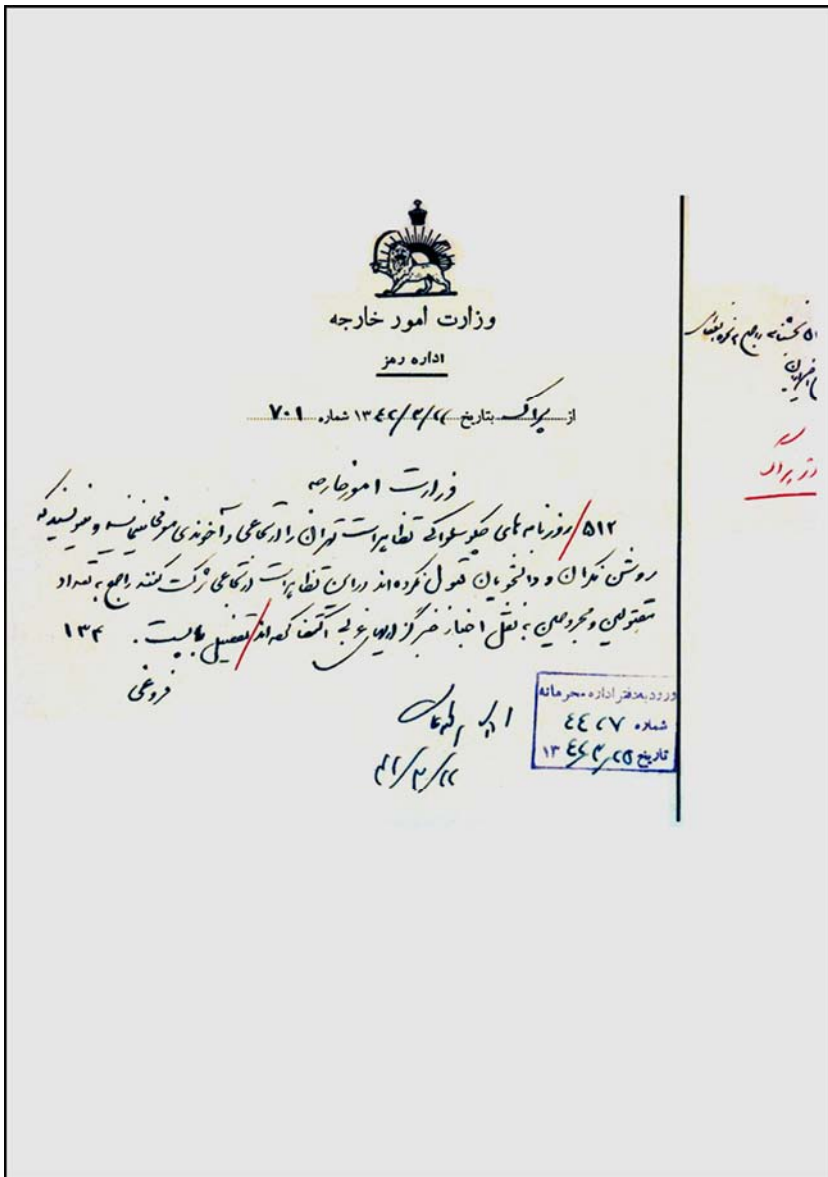 وزارت امور خارجه
اداره رمز
از پراگ بتاریخ ۱۳۴۲/۳/۲۲ شماره ۷۰۱
وزارت امور خارجه
۵۱۲/ روزنامه های چکوسلواکی تظاهرات تهران را ارتجاعی و آخوندی معرفی نموده و مینویسند که
روشن فکران و دانشجویان قبول نکرده اند دراین تظاهرات ارتجاعی شرکت کنند راجع به تعداد
مقتولین و مجروحین به نقل اخبار خبرگزاریهای غربی اکتفا کرده اند/ تفصیل با پست . ۱۳۴
فروغی
۴۲/۳/۲۲
ورود بدفتر اداره محرمانه
شماره ۴۴۲۷
تاریخ ۱۳۴۲/۳/۲۵
راجع به
از پراگ